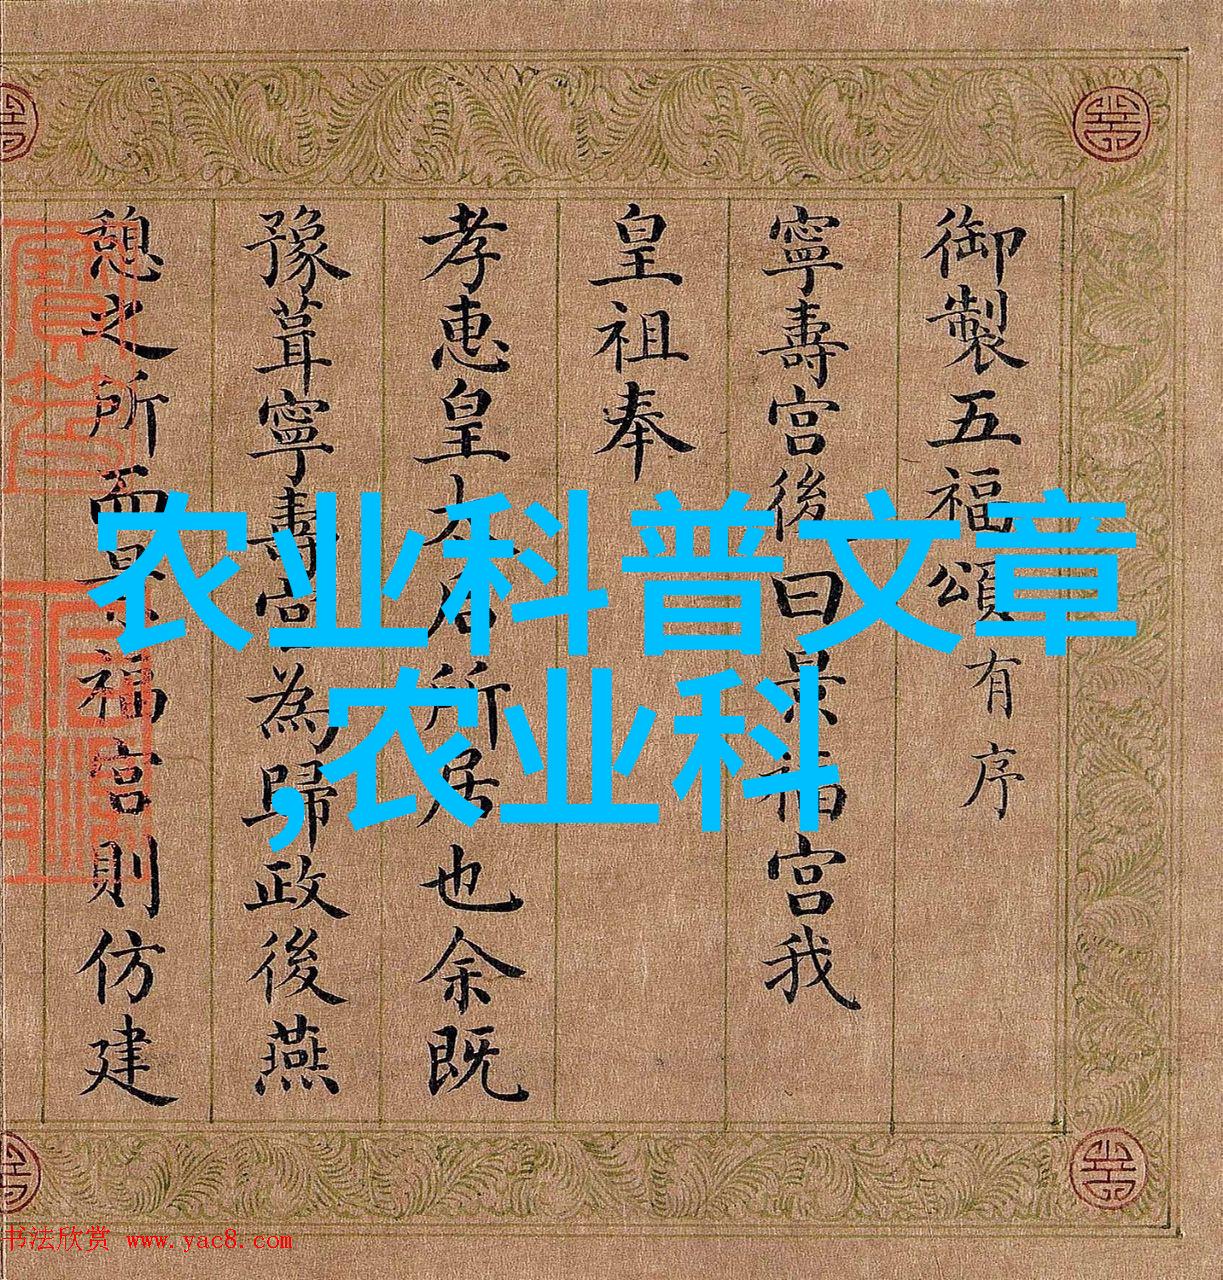 御製五福頌有序
寧壽宮後曰景福宮我
皇祖奉
孝惠皇太后所居也余既
豫葺寧壽宮為歸政後燕
憩之所而景福宮則仿建
农业科普文章
,农业科
书法欣赏 www.yac8.com